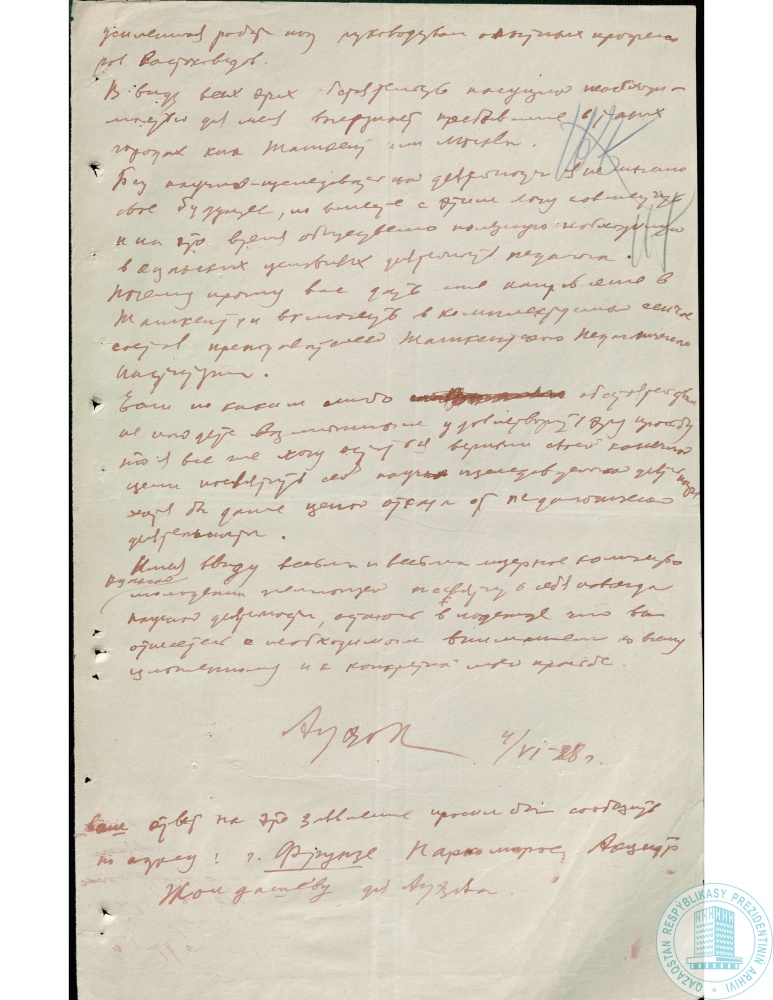 усиленная работа под руководством опытных професо
ров Востоковедов.
В виду всех этих обстоятельств насущно необходи-
мостью для меня является пребывание в таких
городах как Ташкент или Москва.
Без научно-исследовательской деятельности я не мыслю
свое будущее, но вместе с этим могу совместить
и на это время общественно полезную необходимую
в аульских условиях деятельность педагога.
Почему прошу вас дать мне направление в
Ташкент и включить в комплектуемый сейчас
состав преподавателей Ташкентского Педагогического
института.
Если по каким либо обстоятельствам
не найдете возможным удовлетворить эту просьбу
то я все же хочу остаться верным своей конечной
цели посвятить себя научно исследовательской деятельности
хотя бы даже ценой отказа от педагогической
деятельности.
Имея ввиду весьма и весьма мизерное количество
аульской
молодежи желающей посвятить себя навсегда
научной деятельности, остаюсь в надежде что вы
отнесетесь с необходимым вниманием ко всему
изложенному и к конкретной моей просьбе.
Ауэзов 4/VI-28 г.
Ваш ответ на это заявление просил бы сообщить
по адресу: г. Фрунзе Наркомпрос, Акцентр
Жолдашеву для Ауэзова.
QAZAQSTAN RESPÝBLIKASY PREZIDENTINIŃ ARHIVI